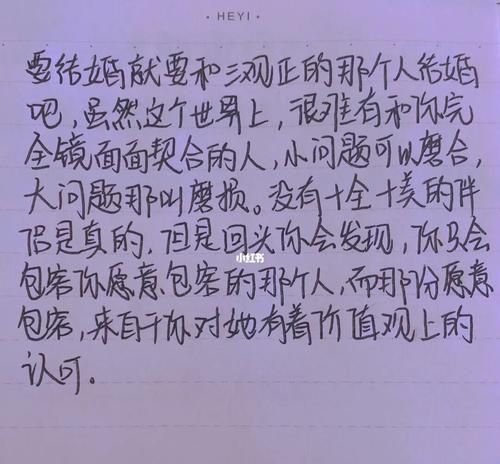 · HEYI ·
要结婚就要和三观正的那个人结婚
吧，虽然这个世界上，很难有和你完
全镜面面契合的人，小问题可以磨合，
大问题那叫磨损。没有十全十美的伴
侣是真的，但是回头你会发现，你只会
小红书
包容你愿意包容的那个人，而那份愿意
包容，来自于你对她有着价值观上的
认可。